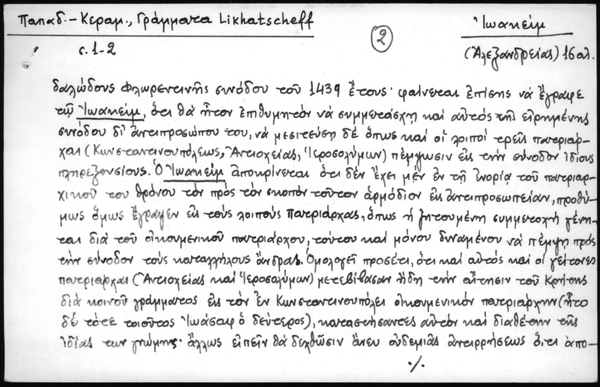 Παπαδ.-Κεραμ., Γράμματα Likhatscheff
Ἰωακείμ
σ. 1-2
2
(Ἀλεξανδρείας) 16 αἰ.
δαλώδους Φλωρεντινῆς συνόδου τοῦ 1439 ἔτους· φαίνεται ἐπίσης νὰ ἔγραφε
τῷ Ἰωακείμ, ὅτι θὰ ἦτον ἐπιθυμητὸν νὰ συμμετάσχῃ καὶ αὐτὸς τῆς εἰρημένης
συνόδου δι' ἀντιπροσώπου του, νὰ μεσιτεύσῃ δὲ ὅπως καὶ οἱ λοιποὶ τρεῖς πατριάρ-
χαι (Κωνσταντινουπόλεως, Ἀντιοχείας, Ἱεροσολύμων) πέμψωσιν εἰς τὴν σύνοδον ἰδίους
πληρεξουσίους. Ὁ Ἰωακεὶμ ἀποκρίνεται ὅτι δὲν ἔχει μὲν ἐν τῇ ἐνορίᾳ τοῦ πατριαρ-
χικοῦ του θρόνου τὸν πρὸς τὸν σκοπὸν τοῦτον ἁρμόδιον εἰς ἀντιπροσωπείαν, προθύ-
μως ὅμως ἔγραψεν εἰς τοὺς λοιποὺς πατριάρχας, ὅπως ἡ ζητουμένη συμμετοχὴ γένη-
ται διὰ τοῦ οἰκουμενικοῦ πατριάρχου, τούτου καὶ μόνου δυναμένου νὰ πέμψῃ πρὸς
τὴν σύνοδον τοὺς καταλλήλους ἄνδρας. Ὁμολογεῖ προσέτι, ὅτι καὶ αὐτὸς καὶ οἱ γείτονες
πατριάρχαι (Ἀντιοχείας καὶ Ἱεροσολύμων) μετεβίβασαν ἤδη τὴν αἴτησιν τοῦ Κρήτης
διὰ κοινοῦ γράμματος εἰς τὸν ἐν Κωνσταντινουπόλει οἰκουμενικὸν πατριάρχην (ἦτο
δὲ τότε τοιοῦτος Ἰωάσαφ ὁ δεύτερος), καταστήσαντες αὐτὸν καὶ διαθέτην τῆς
ἰδίας των γνώμης· ἄλλως εἰπεῖν θὰ δεχθῶσιν ἄνευ οὐδεμιᾶς ἀντιρρήσεως ὅ,τι ἀπο-
./.